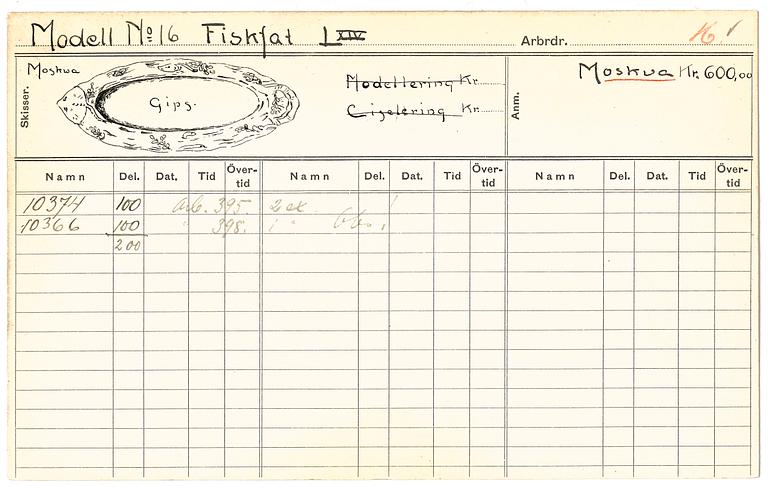 Modell No 16 Fiskfat LXIV Arbrdr. 16
Skisser. Moskva Gips. Modellering Kr. Anm. Moskva Kr. 600,00
Ciselering Kr.
Namn Del. Dat. Tid Över-tid Namn Del. Dat. Tid Över-tid Namn Del. Dat. Tid Över-tid
10374 100 arb. 395. 2 ex
10366 100 " 398. 1 " Obs!
200